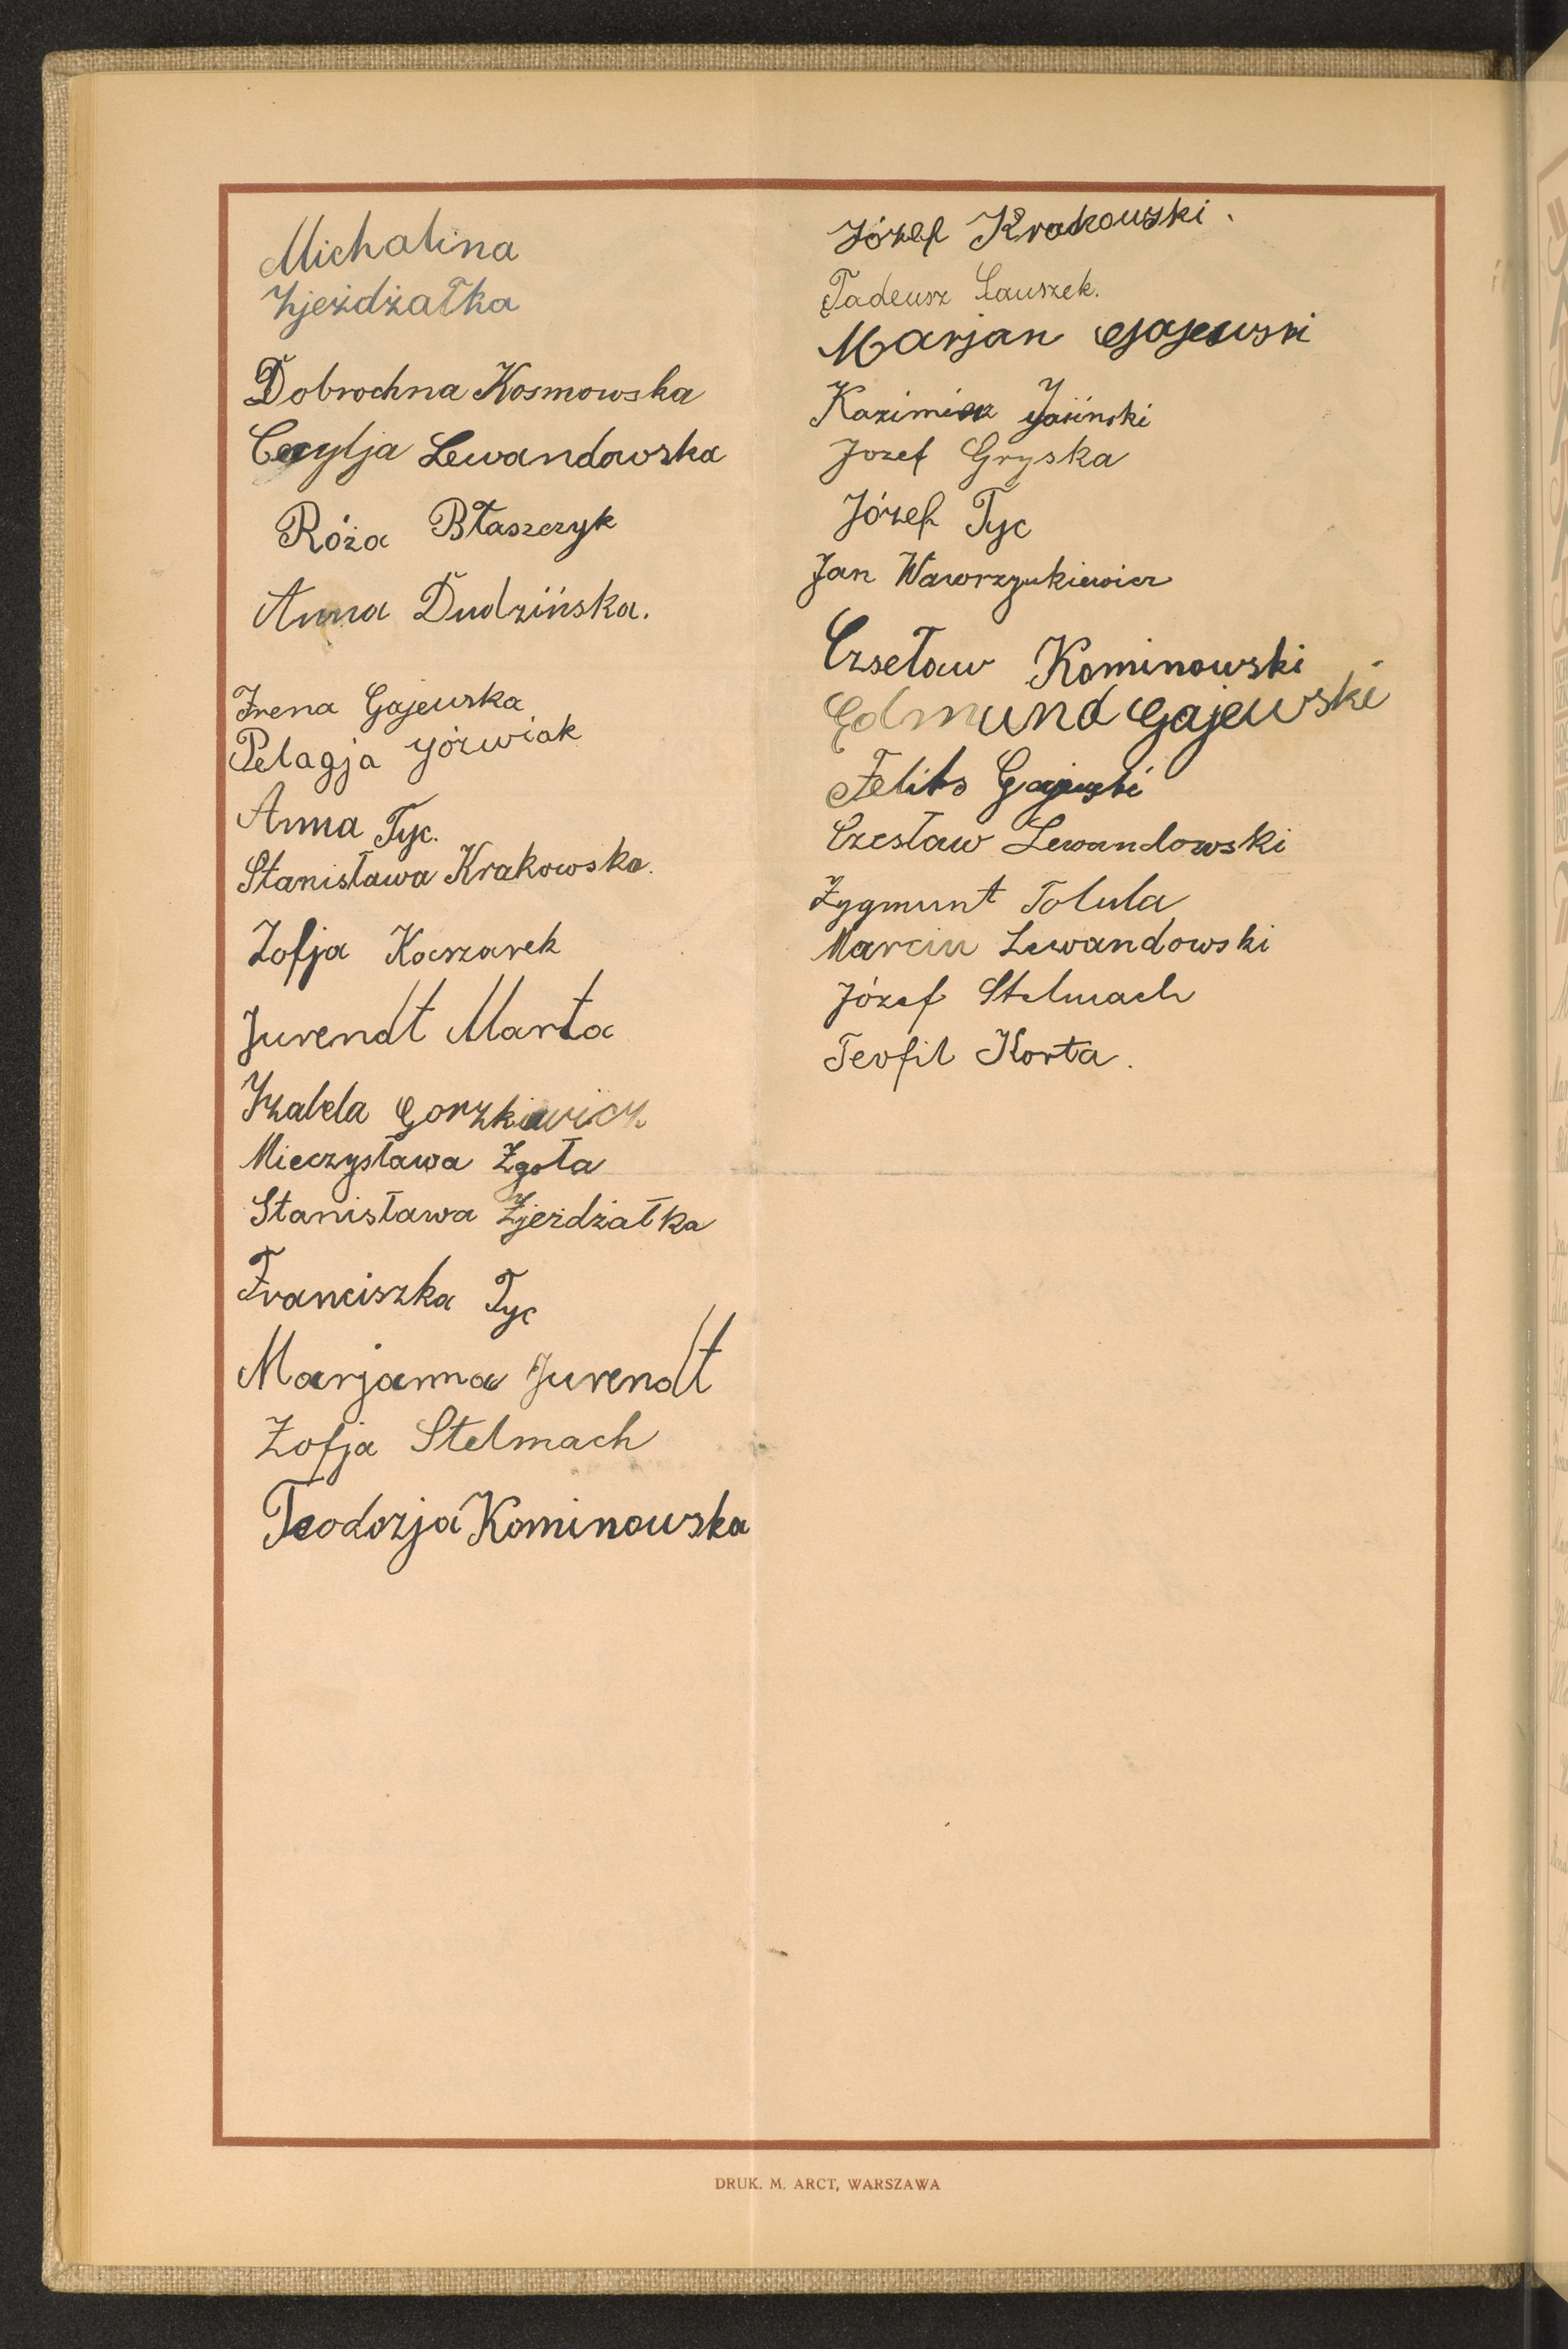 Michalina
Zjeżdżałka
Dobrochna Kosmowska
Cecylja Lewandowska
Róża Błaszczyk
Anna Dudzińska.
Irena Gajewska
Pelagja Jóżwiak
Anna Tyc.
Stanisława Krakowska.
Zofja Kaczarek
Jurendt Marta
Izabela Gorzkiewicz
Mieczysława Zgoła
Stanisława Zjeżdżałka
Franciszka Tyc
Marjanna Jurendt
Zofja Stelmach
Teodozja Kominowska
Józef Krakowski.
Tadeusz Łauszek.
Marjan Gajewski
Kazimierz Jasiński
Jozef Gryska
Józef Tyc
Jan Wawrzynkiewicz
Czseław Kominowski
Edmund Gajewski
Feliks Gajewski
Czesław Lewandowski
Zygmunt Tolula
Marcin Lewandowski
Józef Stelmach
Teofil Korta.
DRUK. M. ARCT, WARSZAWA